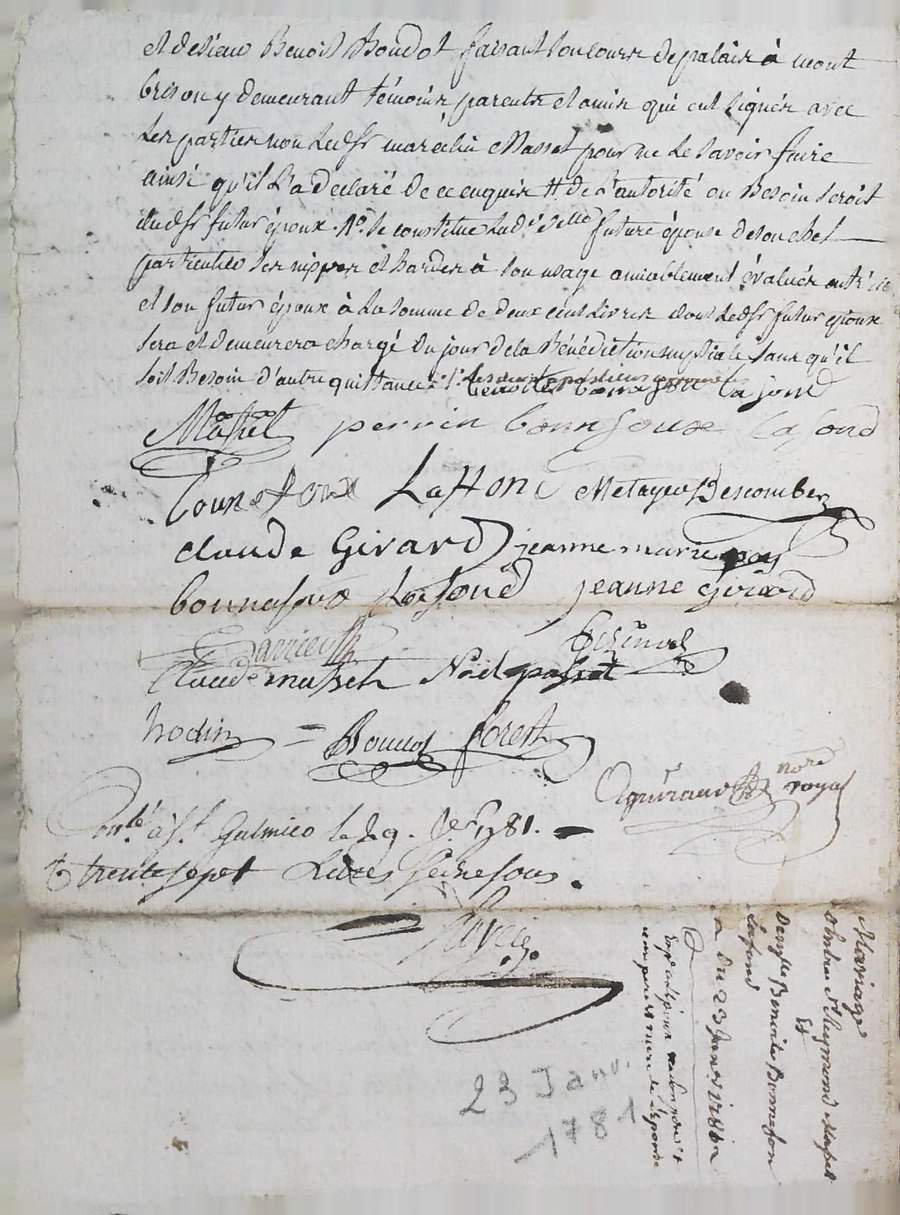 et de sieur Benoit Boudot faisant son cours de palais à mont
brison y demeurant témoins parents et amis qui ont signés avec
les parties non ledsr Masset pour ne le savoir faire
ainsi qu'il l'a déclaré de ce enquis # de l'autorité ou Besoin seroit
dudsr futur époux. No. Se constitue lade. delle future épouse de son chef
particulier ses nippes et hardes à son usage amiablement évalués entr'elle
et son futur époux à la somme de deux cent livres dont ledsr futur époux
sera et demeurera chargé du jour de la Bénédiction nuptiale sans qu'il
soit Besoin d'autre quittance
benoite bonnefoux lafond
Masset perrin bonnefoux lafond
bonnefoux Laffond Metayer Descombes
claude Girard jeanne marie
bonnefoux Lafond jeanne Girard
Claude masset Noël passet
hodin Boudot forest
no.re royal
Con.lé à St. Galmier le 29. Jer. 1781.
# trente sept Livres seize sous.
Mariage
d'entre sr. Aymond Masset
Et
delle Benoite Bonnefon
Lafond
du 23 Janvier 1781
pere et mere de l'épouse
23 Janv.
1781